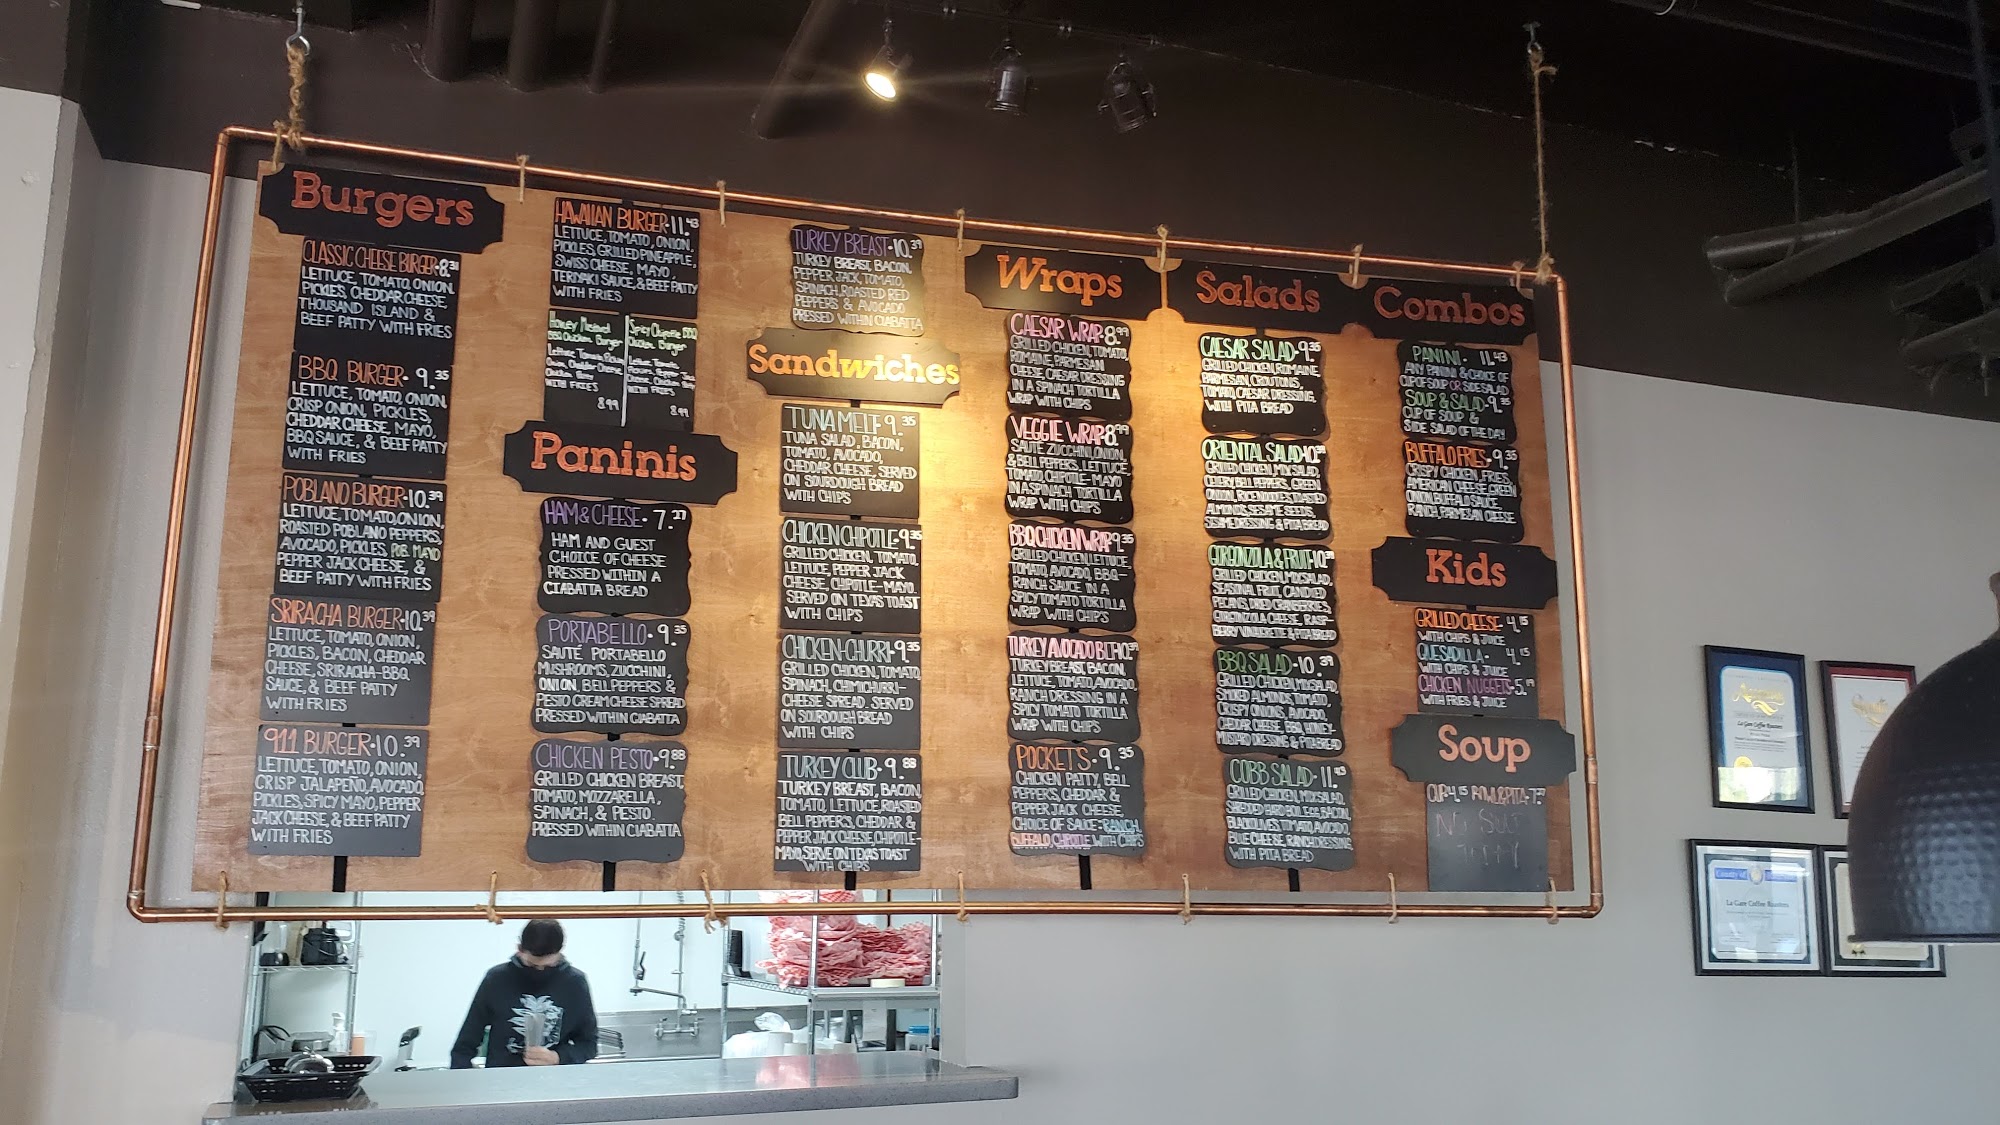 Burgers
CLASSIC CHEESE BURGER-8.31
LETTUCE, TOMATO, ONION,
PICKLES, CHEDDAR CHEESE,
THOUSAND ISLAND &
BEEF PATTY WITH FRIES
BBQ BURGER- 9.35
LETTUCE, TOMATO, ONION,
CRISP ONION, PICKLE'S,
CHEDDAR CHEESE, MAYO,
BBQ SAUCE, & BEEF PATTY
WITH FRIES
POBLANO BURGER-10.39
LETTUCE, TOMATO, ONION,
ROASTED POBLANO PEPPERS,
AVOCADO, PICKLES, POB. MAYO
PEPPER JACK CHEESE, &
BEEF PATTY WITH FRIES
SRIRACHA BURGER-10.39
LETTUCE, TOMATO, ONION,
PICKLES, BACON, CHEDDAR
CHEESE, SRIRACHA-BBQ
SAUCE, & BEEF PATTY
WITH FRIES
911 BURGER-10.39
LETTUCE, TOMATO, ONION,
CRISP JALAPENO, AVOCADO,
PICKLES, SPICY MAYO, PEPPER
JACK CHEESE, & BEEF PATTY
WITH FRIES
HAWAIIAN BURGER-11.43
LETTUCE, TOMATO, ONION,
PICKLES, GRILLED PINEAPPLE,
SWISS CHEESE, MAYO,
TERIYAKI SAUCE, & BEEF PATTY
WITH FRIES
Honey Mustard
BBQ Chicken Burger
Lettuce Tomato, Pickles
Onion, Cheddar Cheese
Chicken Patty
WITH FRIES
8.99
Spicy Chipotle BBQ
Chicken Burger
Lettuce, Tomato,
Pickles, Pepper Jack
Cheese, Chicken Patty
WITH FRIES
8.99
Paninis
HAM & CHEESE- 7.27
HAM AND GUEST
CHOICE OF CHEESE
PRESSED WITHIN A
CIABATTA BREAD
PORTABELLO- 9.35
SAUTE PORTABELLO
MUSHROOMS, ZUCCHINI,
ONION, BELL PEPPERS &
PESTO CREAM CHEESE SPREAD
PRESSED WITHIN CIABATTA
CHICKEN PESTO-9.88
GRILLED CHICKEN BREAST,
TOMATO, MOZZARELLA,
SPINACH, & PESTO
PRESSED WITHIN CIABATTA
TURKEY BREAST-10.39
TURKEY BREAST, BACON,
PEPPER JACK, TOMATO,
SPINACH, ROASTED RED
PEPPERS & AVOCADO
PRESSED WITHIN CIABATTA
Sandwiches
TUNA MELT-9.35
TUNA SALAD, BACON,
TOMATO, AVOCADO,
CHEDDAR CHEESE, SERVED
ON SOURDOUGH BREAD
WITH CHIPS
CHICKEN CHIPOTLE-9.35
GRILLED CHICKEN, TOMATO,
LETTUCE, PEPPER JACK
CHEESE, CHIPOTLE-MAYO.
SERVED ON TEXAS TOAST
WITH CHIPS
CHICKEN-CHURRI-9.35
GRILLED CHICKEN, TOMATO,
SPINACH, CHIMICHURRI-
CHEESE SPREAD. SERVED
ON SOURDOUGH BREAD
WITH CHIPS
TURKEY CLUB-9.88
TURKEY BREAST, BACON,
TOMATO, LETTUCE, ROASTED
BELL PEPPERS, CHEDDAR &
PEPPER JACK CHEESE, CHIPOTLE-
MAYO, SERVE ON TEXAS TOAST
WITH CHIPS
Wraps
CAESAR WRAP-8.99
GRILLED CHICKEN, TOMATO,
ROMAINE, PARMESAN
CHEESE CAESAR DRESSING
IN A SPINACH TORTILLA
WRAP WITH CHIPS
VEGGIE WRAP-8.99
SAUTE ZUCCHINI, ONION
& BELL PEPPERS, LETTUCE,
TOMATO, CHIPOTLE-MAYO
IN A SPINACH TORTILLA
WRAP WITH CHIPS
BBQ CHICKEN WRAP-9.35
GRILLED CHICKEN, LETTUCE,
TOMATO, AVOCADO, BBQ-
RANCH SAUCE IN A
SPICY TOMATO TORTILLA
WRAP WITH CHIPS
TURKEY AVOCADO BLT-10.39
TURKEY BREAST, BACON,
LETTUCE, TOMATO, AVOCADO,
RANCH DRESSING IN A
SPICY TOMATO TORTILLA
WRAP WITH CHIPS
POCKETS-9.35
CHICKEN PATTY, BELL
PEPPERS, CHEDDAR &
PEPPER JACK CHEESE,
CHOICE OF SAUCE-RANCH,
BUFFALO, CHIPOTLE WITH CHIPS
Salads
CAESAR SALAD-9.35
GRILLED CHICKEN, ROMAINE,
PARMESAN, CROUTONS,
TOMATO, CAESAR DRESSING,
WITH PITA BREAD
ORIENTAL SALAD-10.39
GRILLED CHICKEN, MIX SALAD,
CELERY, BELL PEPPERS, GREEN
ONION, RICE NOODLES, TOASTED
ALMONDS, SESAME SEEDS,
SESAME DRESSING & PITA BREAD
GORGONZOLA & FRUIT-10.39
GRILLED CHICKEN, MIX SALAD,
SEASONAL FRUIT, CANDIED
PECANS, DRIED CRANBERRIES,
GORGONZOLA CHEESE, RASP-
BERRY VINAIGRETTE & PITA BREAD
BBQ SALAD-10.39
GRILLED CHICKEN, MIX SALAD,
SMOKED ALMONDS, TOMATO,
CRISPY ONIONS, AVOCADO,
CHEDDAR CHEESE, BBQ, HONEY-
MUSTARD DRESSING & PITA BREAD
COBB SALAD-11.43
GRILLED CHICKEN, MIX SALAD,
SHREDDED HARD BOIL EGG, BACON,
BLACK OLIVES, TOMATO, AVOCADO,
BLUE CHEESE, RANCH DRESSING
WITH PITA BREAD
Combos
PANINI- 11.43
ANY PANINI & CHOICE OF
CUP OF SOUP OR SIDE SALAD
SOUP & SALAD-9.35
CUP OF SOUP &
SIDE SALAD OF THE DAY
BUFFALO FRIES-9.35
CRISPY CHICKEN, FRIES,
AMERICAN CHEESE, GREEN
ONION, BUFFALO SAUCE,
RANCH, PARMESAN CHEESE
Kids
GRILLED CHEESE- 4.15
WITH CHIPS & JUICE
QUESADILLA- 4.15
WITH CHIPS & JUICE
CHICKEN NUGGETS-5.19
WITH FRIES & JUICE
Soup
CUP-4.15 BOWL & PITA-7.27
NO SOUP
TODAY
La Gare Coffee Roasters
County of
La Gare Coffee Roasters